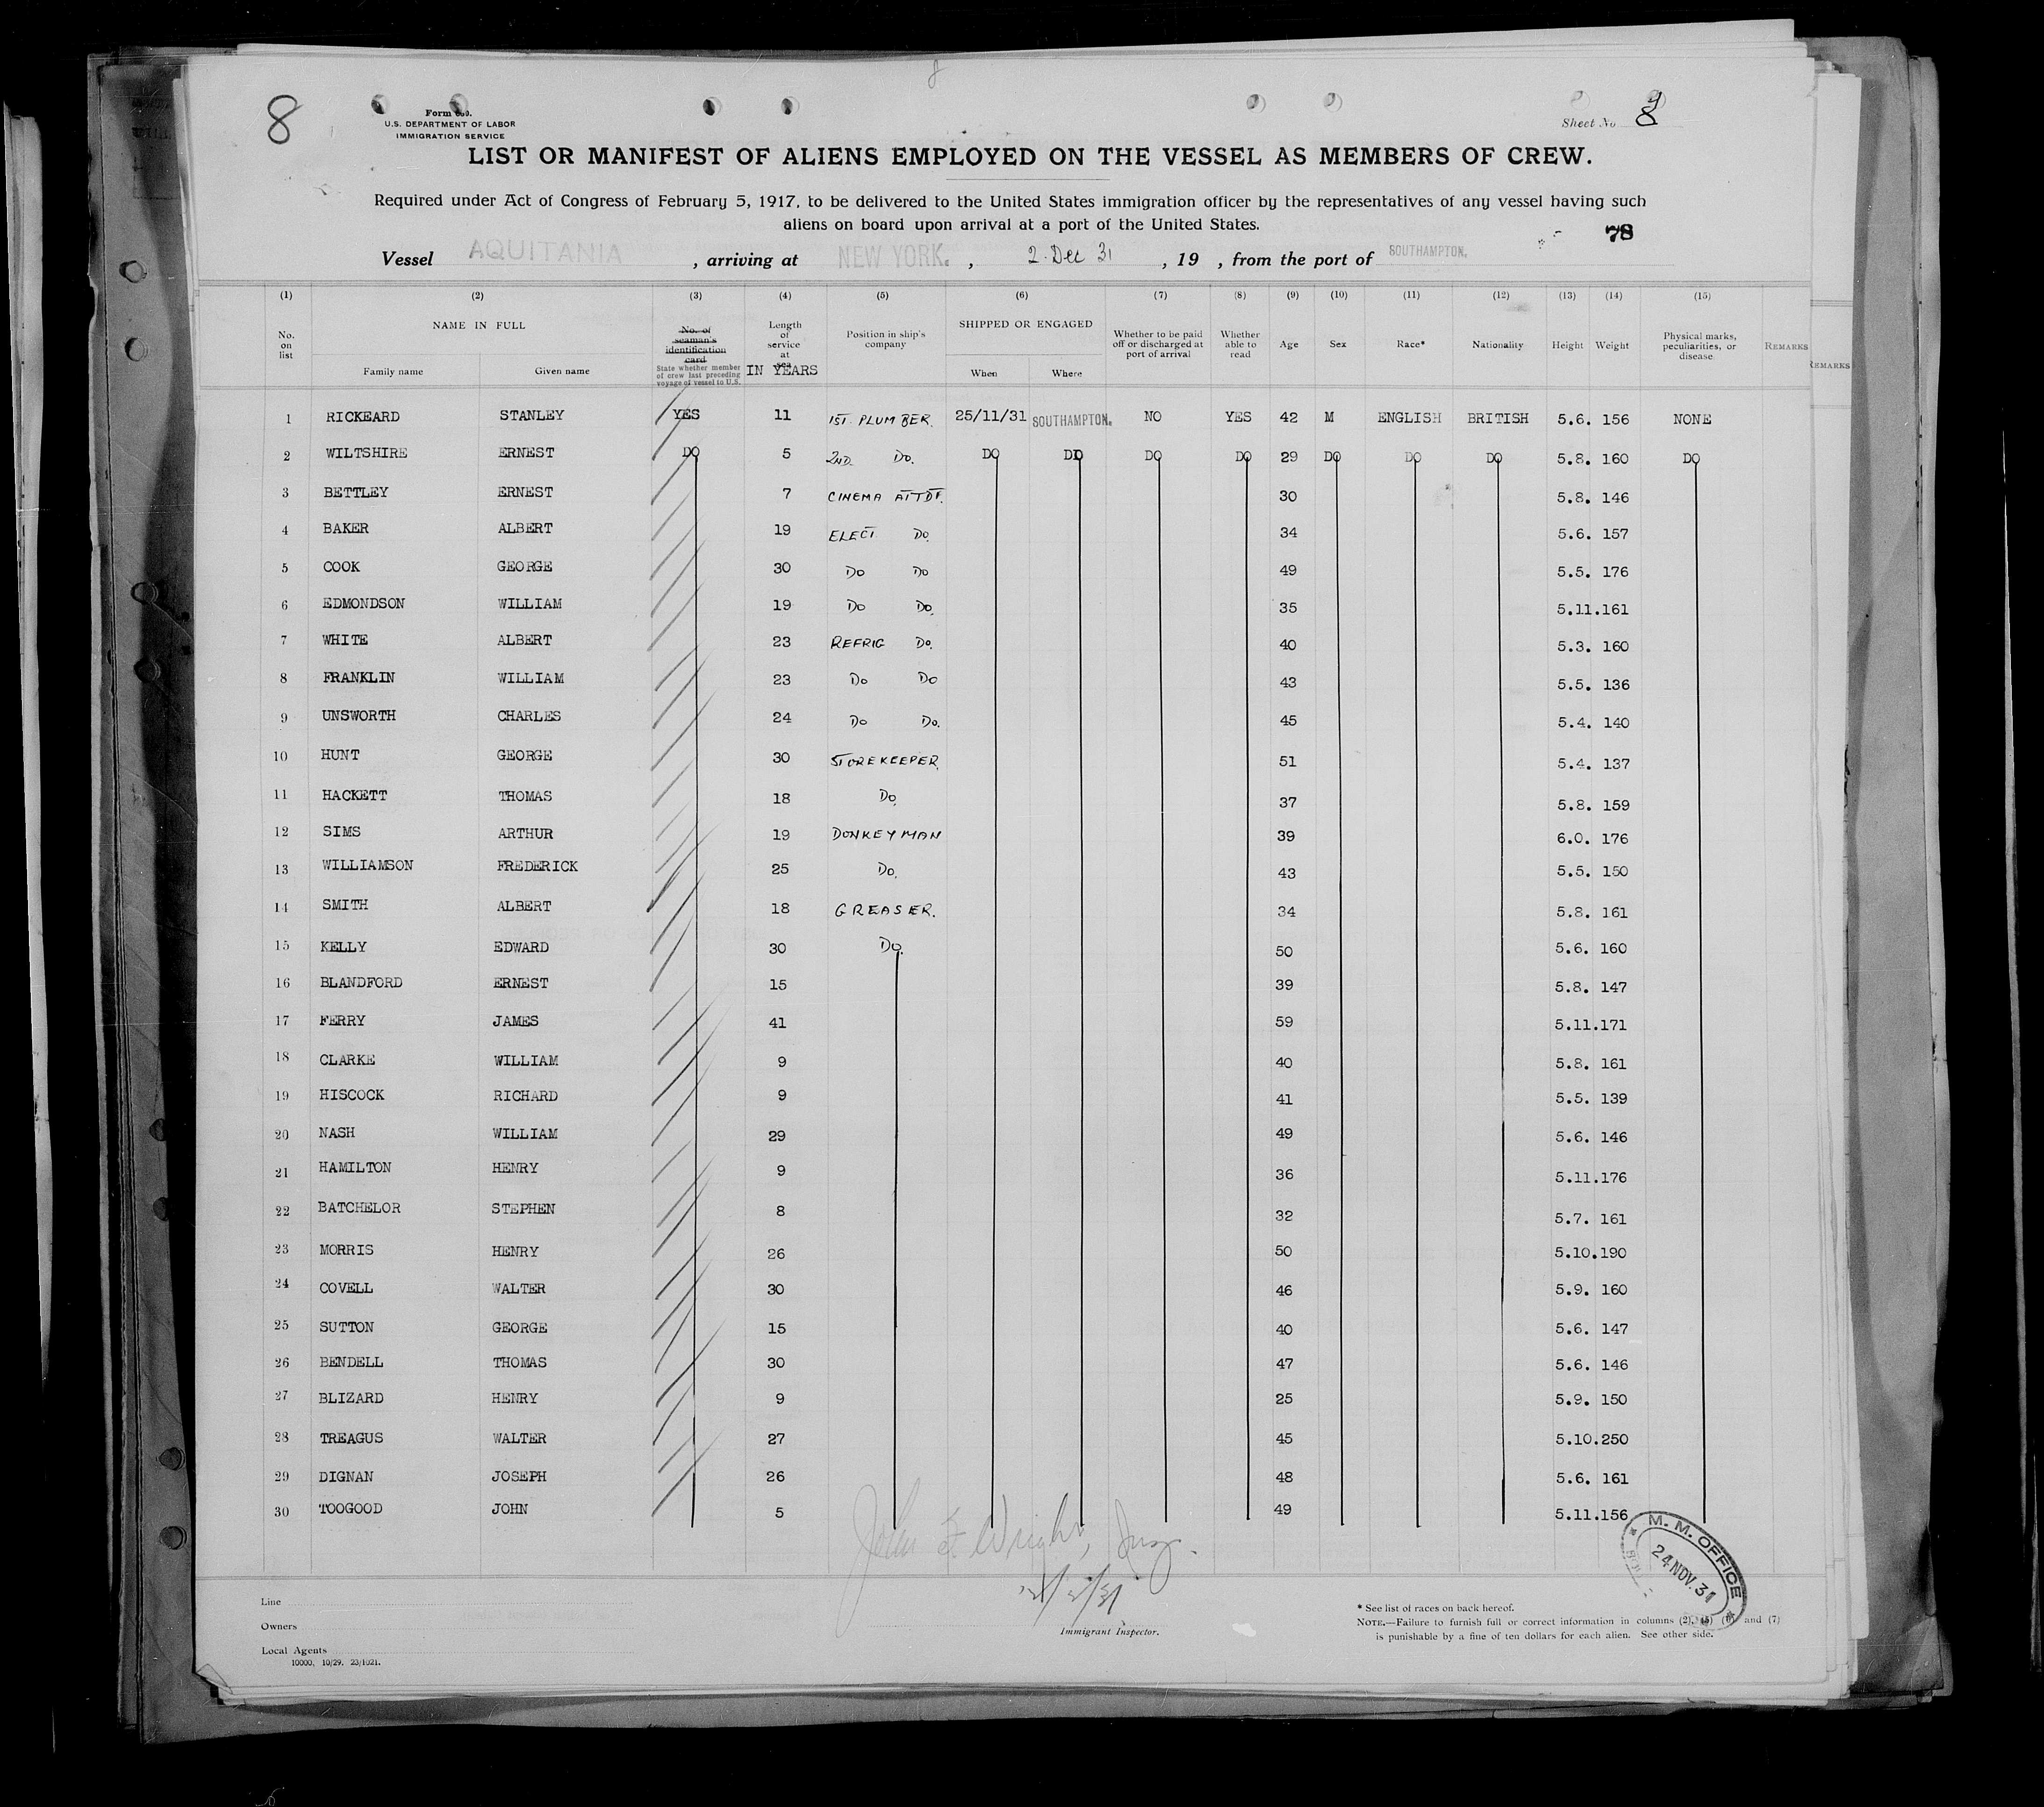 8
8
Form 680.
U.S. DEPARTMENT OF LABOR
IMMIGRATION SERVICE
Sheet No 8
LIST OR MANIFEST OF ALIENS EMPLOYED ON THE VESSEL AS MEMBERS OF CREW.
Required under Act of Congress of February 5, 1917, to be delivered to the United States immigration officer by the representatives of any vessel having such
aliens on board upon arrival at a port of the United States.
78
Vessel AQUITANIA, arriving at NEW YORK., 2 Dec 31, 19 , from the port of SOUTHAMPTON.
(1) (2) (3) (4) (5) (6) (7) (8) (9) (10) (11) (12) (13) (14) (15)
No. on list NAME IN FULL Family name Given name No. of seaman's identification card State whether member of crew last preceding voyage of vessel to U.S. Length of service at sea IN YEARS Position in ship's company SHIPPED OR ENGAGED When Where Whether to be paid off or discharged at port of arrival Whether able to read Age Sex Race* Nationality Height Weight Physical marks, peculiarities, or disease REMARKS
REMARKS
1 RICKEARD STANLEY YES 11 1ST. PLUMBER. 25/11/31 SOUTHAMPTON. NO YES 42 M ENGLISH BRITISH 5.6. 156 NONE
2 WILTSHIRE ERNEST DO 5 2ND. DO. DO DO DO DO 29 DO DO DO 5.8. 160 DO
3 BETTLEY ERNEST 7 CINEMA ATTDT. 30 5.8. 146
4 BAKER ALBERT 19 ELECT. DO. 34 5.6. 157
5 COOK GEORGE 30 DO DO 49 5.5. 176
6 EDMONDSON WILLIAM 19 DO DO. 35 5.11.161
7 WHITE ALBERT 23 REFRIG DO. 40 5.3. 160
8 FRANKLIN WILLIAM 23 DO DO 43 5.5. 136
9 UNSWORTH CHARLES 24 DO DO. 45 5.4. 140
10 HUNT GEORGE 30 STOREKEEPER. 51 5.4. 137
11 HACKETT THOMAS 18 DO. 37 5.8. 159
12 SIMS ARTHUR 19 DONKEYMAN 39 6.0. 176
13 WILLIAMSON FREDERICK 25 DO. 43 5.5. 150
14 SMITH ALBERT 18 GREASER. 34 5.8. 161
15 KELLY EDWARD 30 DO. 50 5.6. 160
16 BLANDFORD ERNEST 15 39 5.8. 147
17 FERRY JAMES 41 59 5.11.171
18 CLARKE WILLIAM 9 40 5.8. 161
19 HISCOCK RICHARD 9 41 5.5. 139
20 NASH WILLIAM 29 49 5.6. 146
21 HAMILTON HENRY 9 36 5.11.176
22 BATCHELOR STEPHEN 8 32 5.7. 161
23 MORRIS HENRY 26 50 5.10.190
24 COVELL WALTER 30 46 5.9. 160
25 SUTTON GEORGE 15 40 5.6. 147
26 BENDELL THOMAS 30 47 5.6. 146
27 BLIZARD HENRY 9 25 5.9. 150
28 TREAGUS WALTER 27 45 5.10.250
29 DIGNAN JOSEPH 26 48 5.6. 161
30 TOOGOOD JOHN 5 49 5.11.156
John F Wright, Insp.
12/2/31
M. M. OFFICE
24 NOV. 31
Line
Owners
Local Agents
10000, 10/29. 23/1021.
Immigrant Inspector.
* See list of races on back hereof.
NOTE.—Failure to furnish full or correct information in columns (2), (5) and (7)
is punishable by a fine of ten dollars for each alien. See other side.